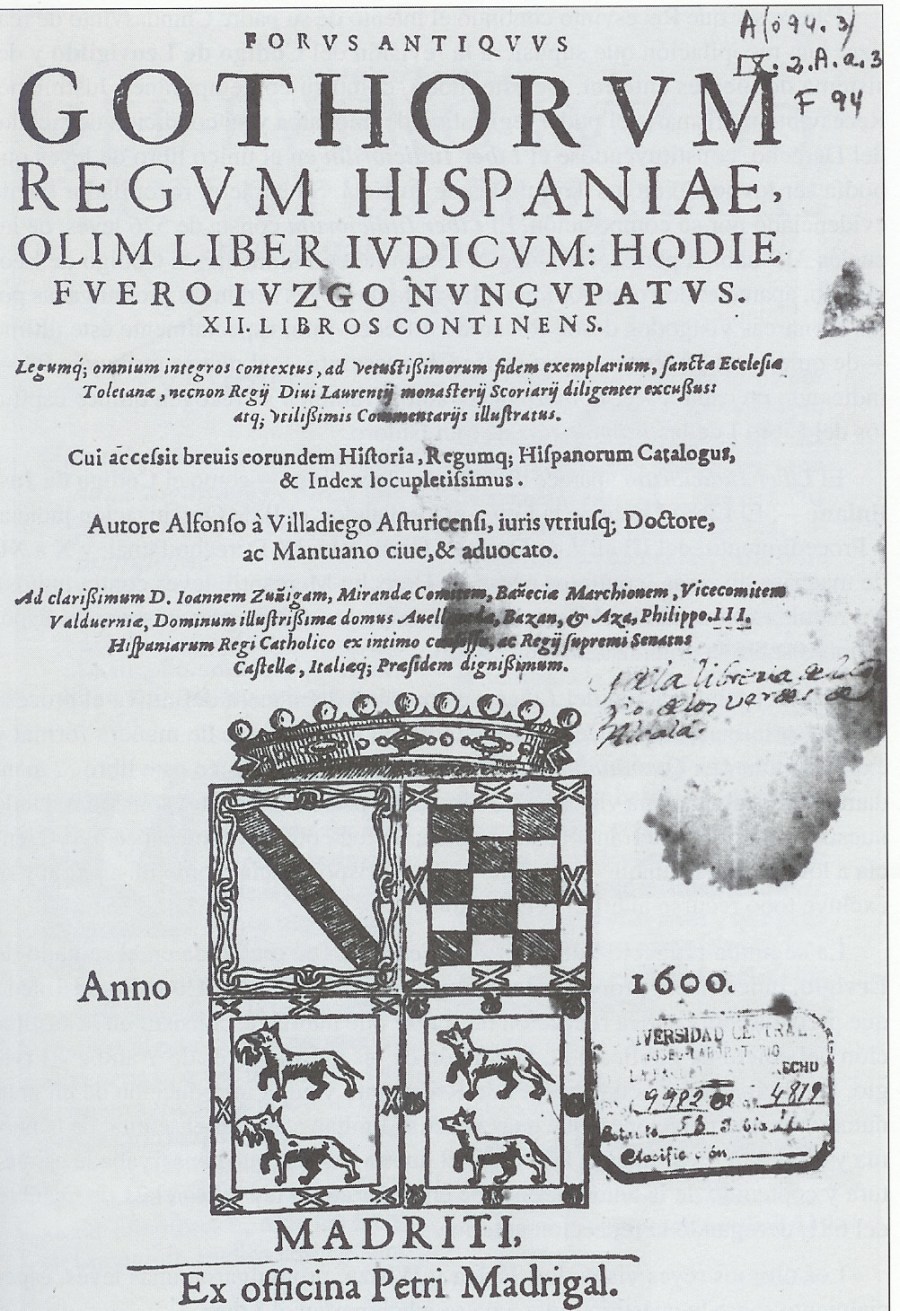 A (094.3)
IX. 2. A. a. 3
F 94
FORVS ANTIQVVS
GOTHORVM
REGVM HISPANIAE,
OLIM LIBER IVDICVM: HODIE.
FVERO IVZGO NVNCVPATVS.
XII. LIBROS CONTINENS.
Legumq; omnium integros contextus, ad vetustißimorum fidem exemplarium, sanctæ Ecclesiæ
Toletanæ, necnon Regij Diui Laurentij monasterij Scoriarij diligenter excußust
atq; vtilißimis Commentarijs illustratus.
Cui accessit breuis eorundem Historia, Regumq; Hispanorum Catalogus,
& Index locupletissimus.
Autore Alfonso à Villadiego Asturicensi, iuris vtriusq; Doctore,
ac Mantuano ciue, & aduocato.
Ad clarißimum D. Ioannem Zuñigam, Mirandæ Comitem, Bañeciæ Marchionem, Vicecomitem
Valduerniæ, Dominum illustrißimæ domus Auellaneda, Bazan, & Aza, Philippo.III.
Hispaniarum Regi Catholico ex intimo ac Regij supremi Senatus
Castellæ, Italiæq; Præsidem dignißimum.
de la libreria
de los verdes de
Alcala
Anno 1600.
VERSIDAD CENTRAL
ECHO
9982 4819
Clasificación
MADRITI,
Ex officina Petri Madrigal.